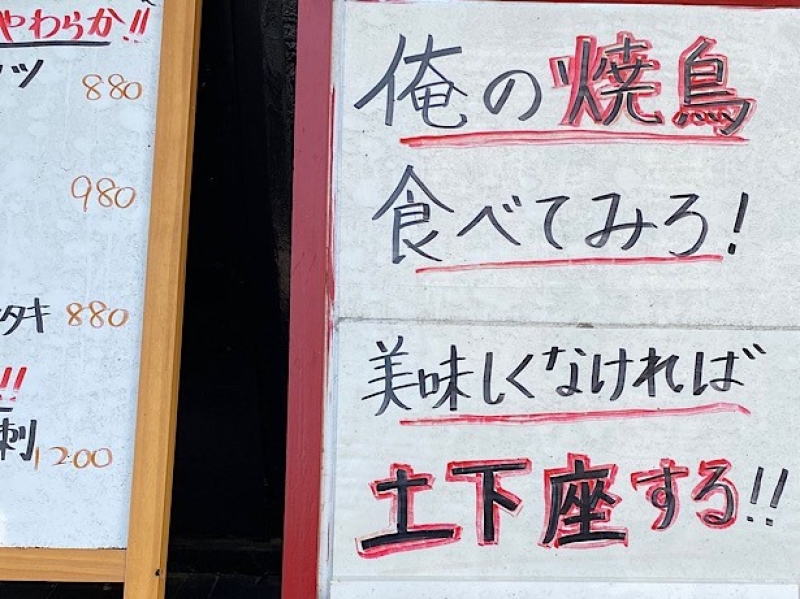 やわらか!!
880
980
タキ 880
!!
刺 1200
俺の焼鳥
食べてみろ!
美味しくなければ
土下座する!!